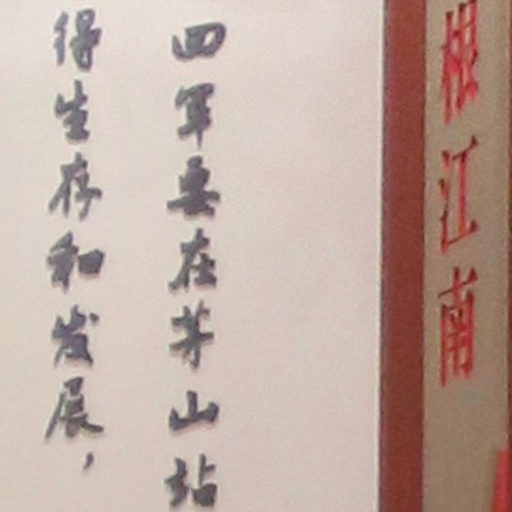 根江南
四军要在茅山站
得生存和发展，